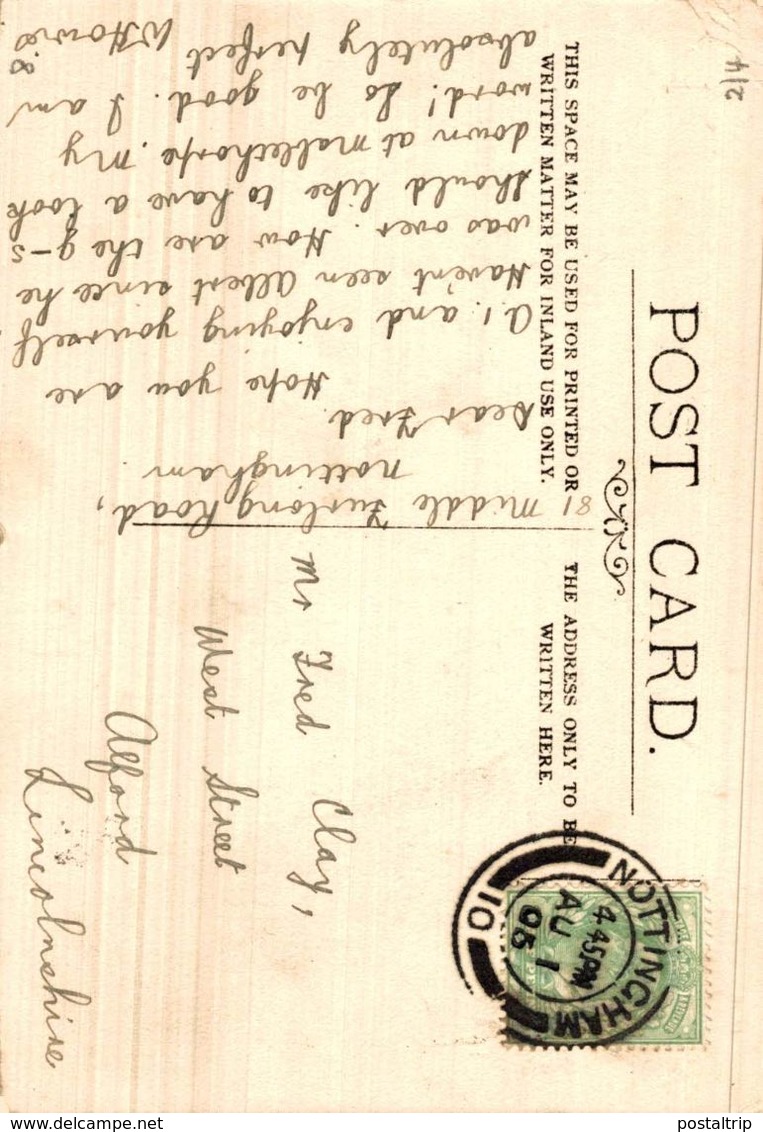 POST CARD.
THIS SPACE MAY BE USED FOR PRINTED OR
WRITTEN MATTER FOR INLAND USE ONLY.
THE ADDRESS ONLY TO BE
WRITTEN HERE.
81 Middle Furlong Road,
Nottingham.
Dear Fred.
Hope you are
A.1 and enjoying yourself
Haven't seen Albert since he
was over. How are the g-s
should like to have a look
down at Mablethorpe. My
word! So be good. I am
absolutely perfect
Mr Fred Clay,
West Street
Alford
Lincolnshire
NOTTINGHAM
4 45PM
AU 1
05
10
2/4
delcampe.net
postaltrip